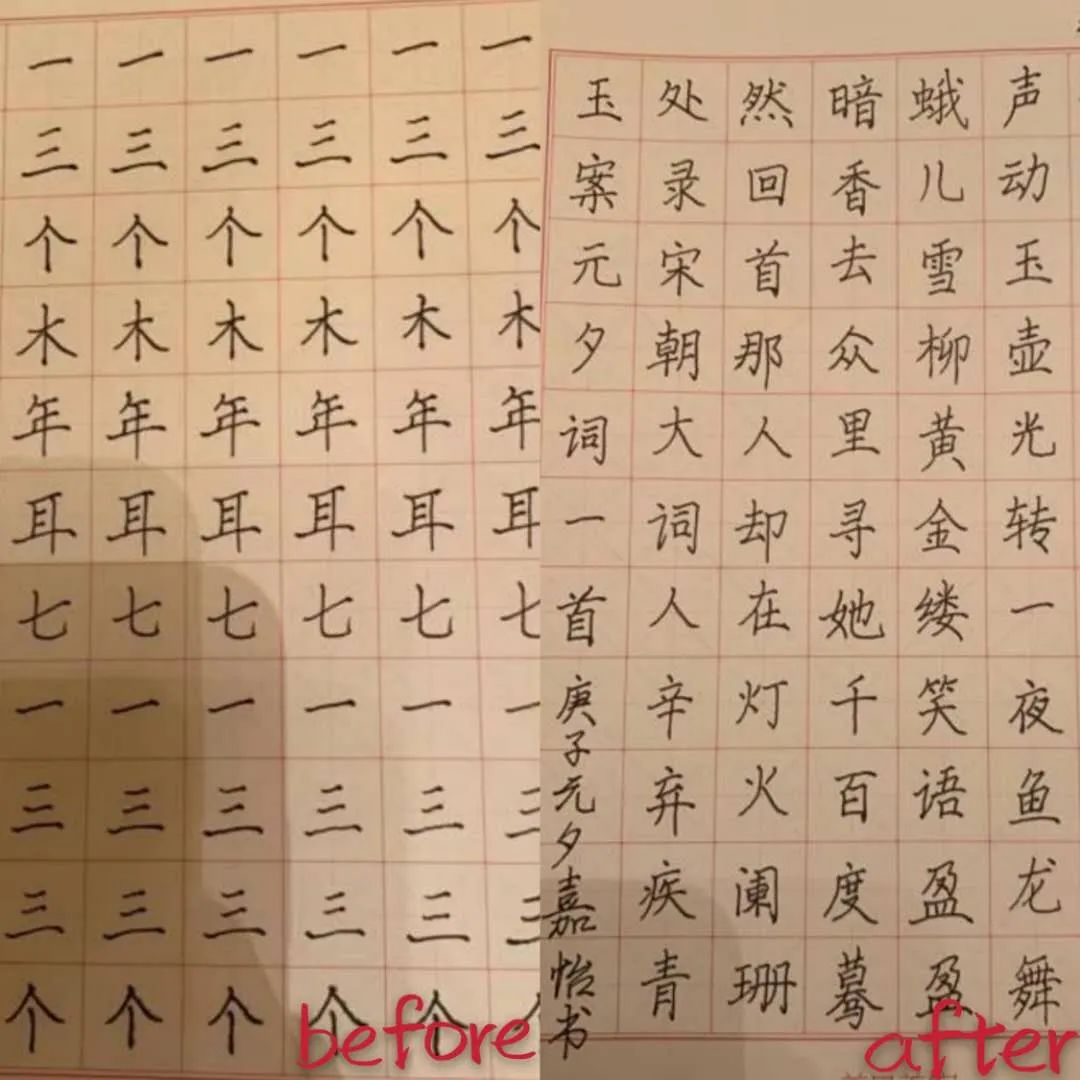 一三个木年耳七一三三个
一三个木年耳七一三三个
一三个木年耳七一三三个
一三个木年耳七一三三个
一三个木年耳七一三三个
一三个木年耳七一三三
before
声动玉壶光转一夜鱼龙舞
蛾儿雪柳黄金缕笑语盈盈
暗香去众里寻她千百度蓦
然回首那人却在灯火阑珊
处录宋朝大词人辛弃疾青
玉案元夕词一首庚子元夕嘉怡书
after